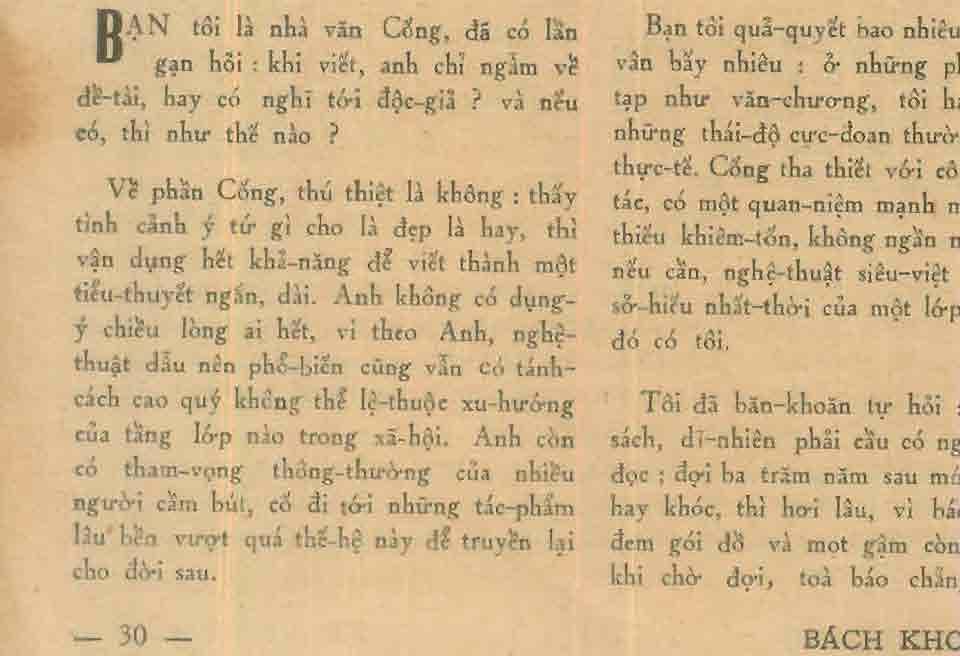 BẠN tôi là nhà văn Cống, đã có lần
gạn hỏi : khi viết, anh chỉ ngắm về
đề-tài, hay có nghĩ tới độc-giả ? và nếu
có, thì như thế nào ?
Về phần Cống, thú thiệt là không : thấy
tình cảnh ý tứ gì cho là đẹp là hay, thì
vận dụng hết khả-năng để viết thành một
tiểu-thuyết ngắn, dài. Anh không có dụng-
ý chiều lòng ai hết, vì theo Anh, nghệ-
thuật dầu nên phổ-biến cũng vẫn có tánh-
cách cao quý không thể lệ-thuộc xu-hướng
của tầng lớp nào trong xã-hội. Anh còn
có tham-vọng thông-thường của nhiều
người cầm bút, cố đi tới những tác-phẩm
lâu bền vượt quá thế-hệ này để truyền lại
cho đời sau.
— 30 —
Bạn tôi quả-quyết bao nhiêu
vân bấy nhiêu : ở những
tạp như văn-chương, tôi
những thái-độ cực-đoan
thực-tế. Cống tha thiết với
tác, có một quan-niệm mạnh
thiếu khiêm-tốn, không ngần
nếu cần, nghệ-thuật siêu-việt
sở-hiếu nhất-thời của một lớp
đó có tôi.
Tôi đã băn-khoăn tự hỏi :
sách, dĩ-nhiên phải cầu có
đọc ; đợi ba trăm năm sau
hay khóc, thì hơi lâu, vì
đem gói đồ và mọt gậm còn
khi chờ đợi, toà báo
BÁCH